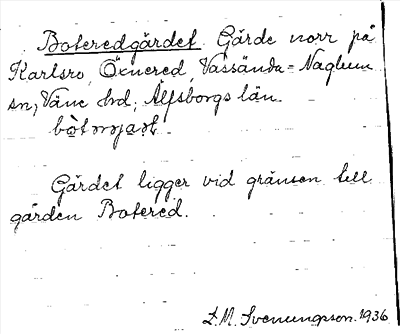 Boteredgärdet. Gärde norr på
Karlsro, Öxnered, Vassända-Naglum
sn, Väne hd, Älfsborgs län.
Gärdet ligger vid gränsen till
gården Botered.
L.M. Svenungsson. 1936